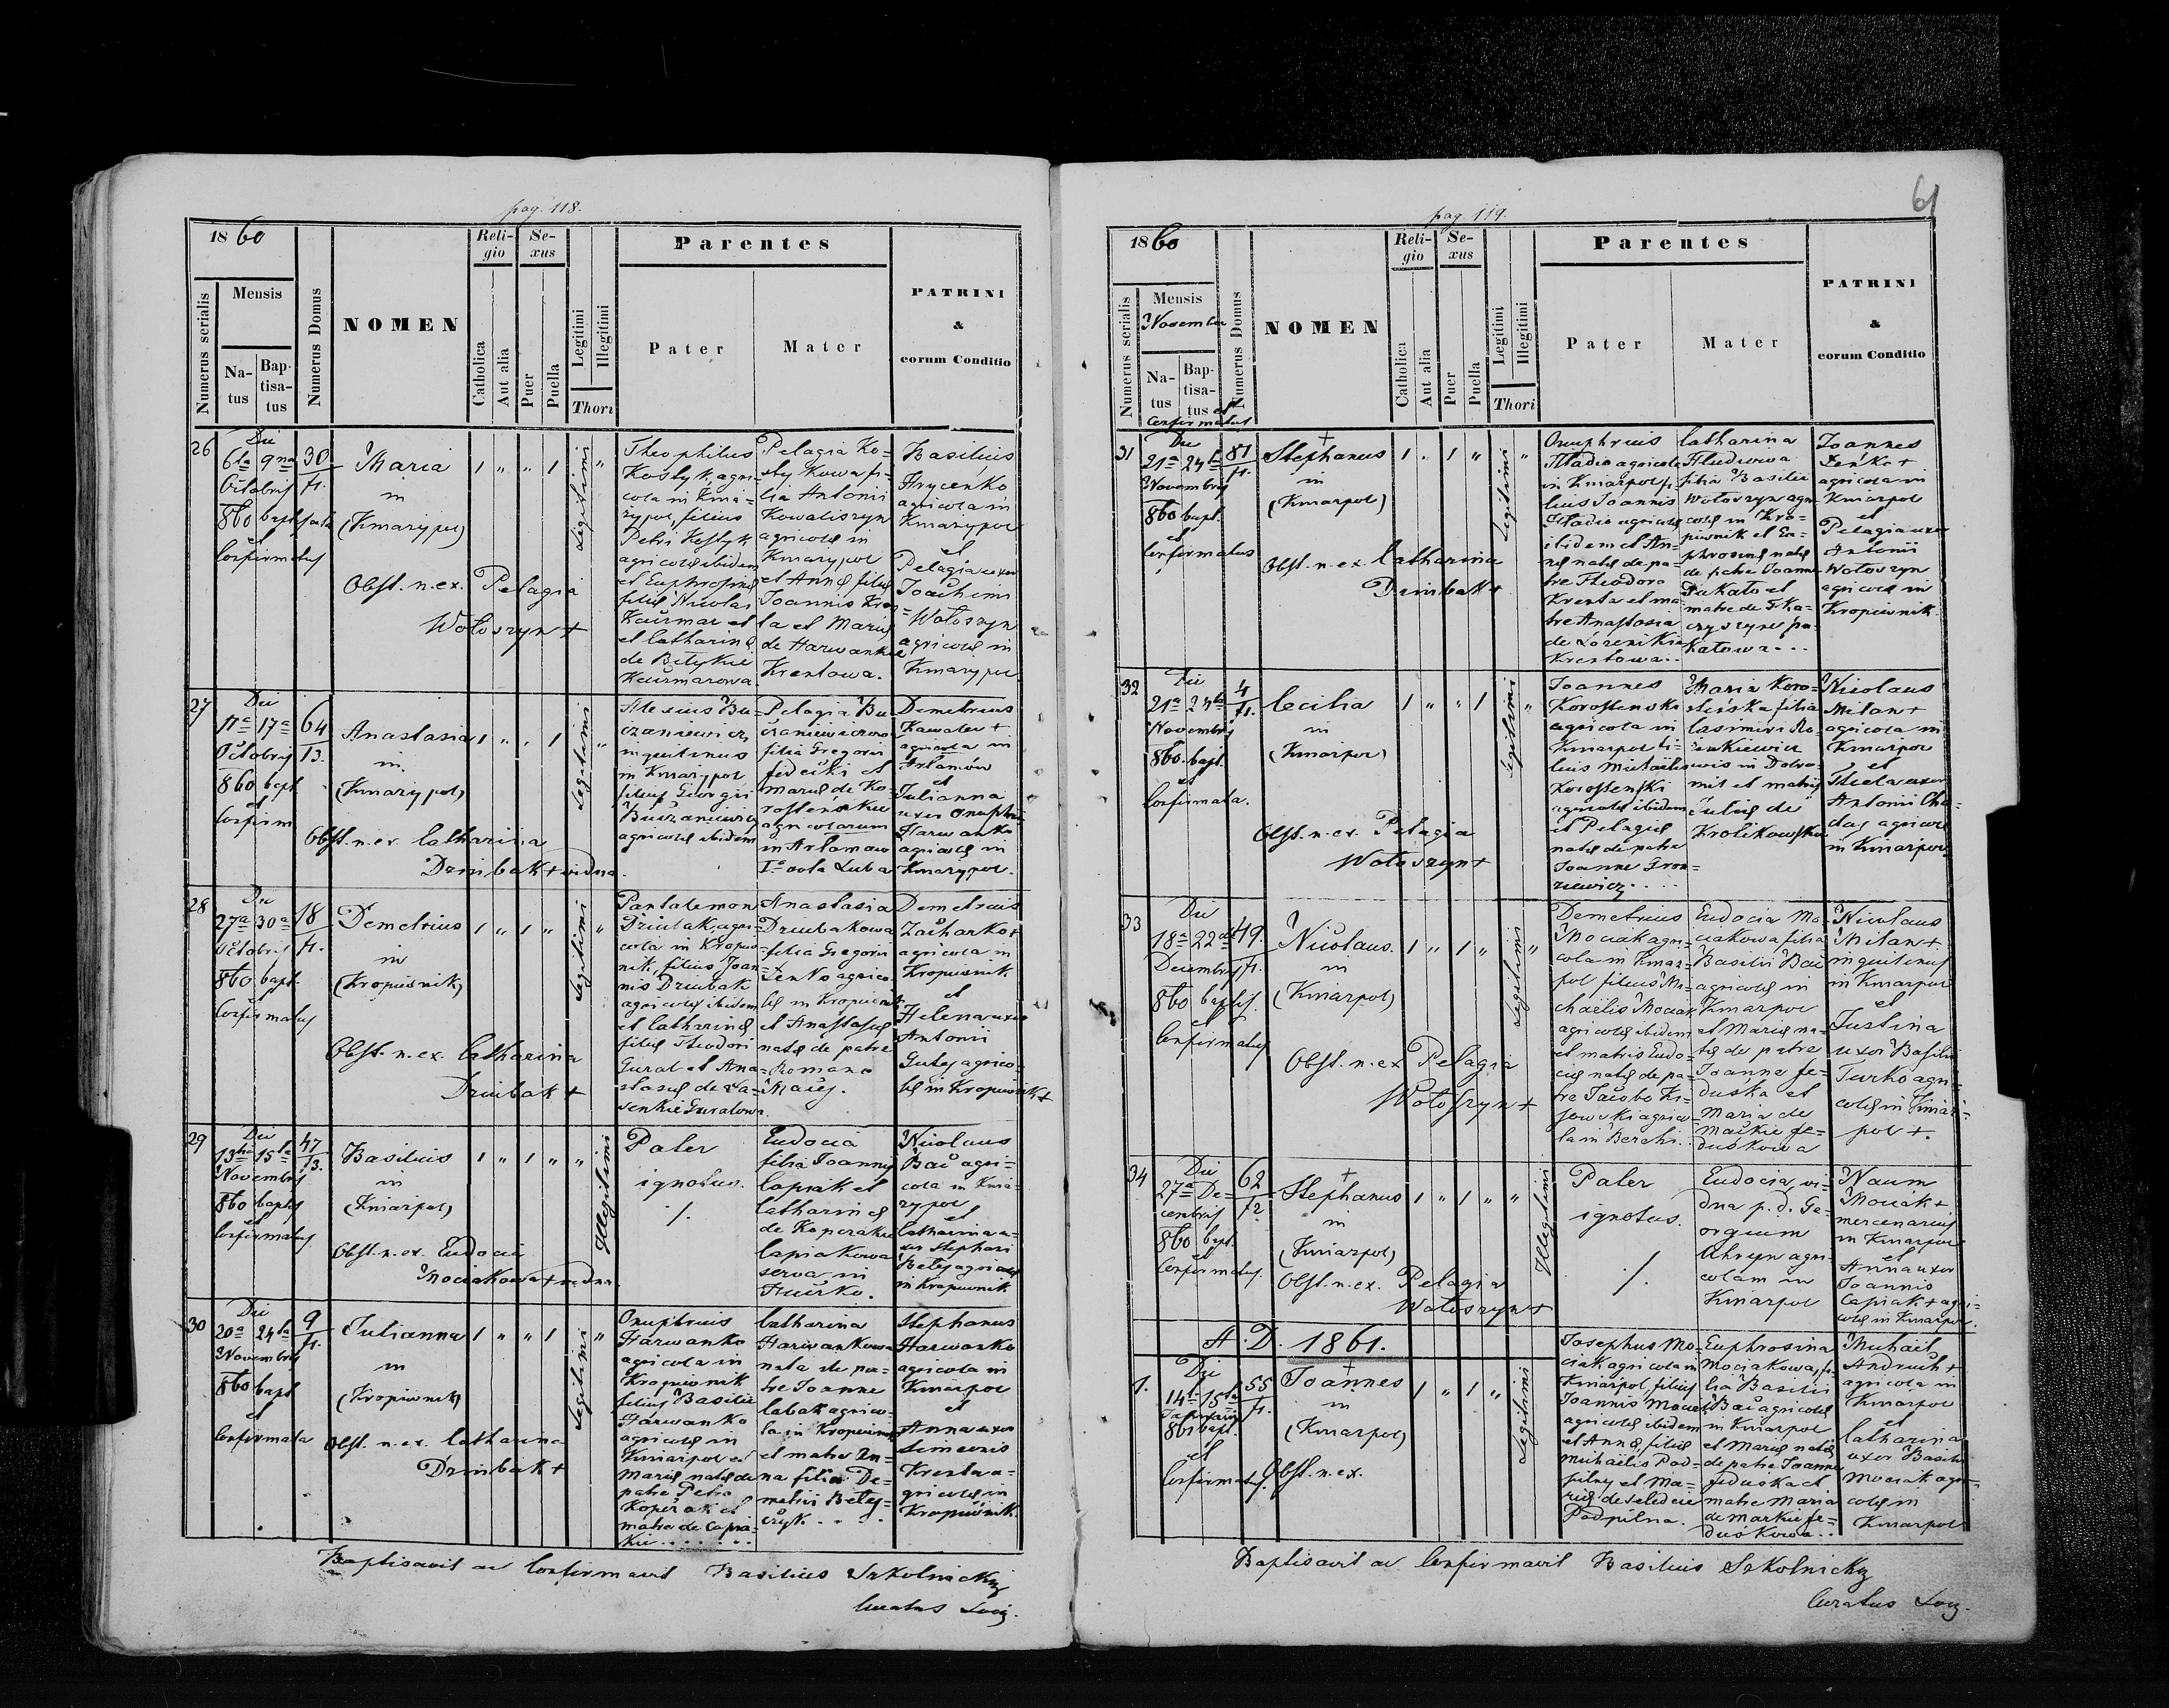 pag. 118.
1860
Numerus serialis
Mensis
Na-
tus
Bap-
tisa-
tus
Numerus Domus
NOMEN
Reli-
gio
Catholica
Aut alia
Se-
xus
Puer
Puella
Legitimi
Illegitimi
Thori
Parentes
Pater
Mater
PATRINI
&
eorum Conditio
26
Die
6ta 9na
Octobris
860 bapt
et
Confirmatus
30
Maria
in
(Kniazypol)
Obst. n. ex. Pelagia
Wołoszyn +
1 " " 1
Legitimi
"
Theophilus
Kostyk, agri-
cola in Knia-
zypol, filius
Petri Kostyk
agricolae ibidem
et Euphrosinae
filiae Nicolai
et Catharinae
Pelagia Ko-
stykowa fi-
lia Antonii
Kowaliszyn
agricolae in
Kniazypol
et Annae filiae
Joannis Kres-
ta et Mariae
de Harwankie
Krestowa.
Basilius
Hrycenko
agricola in
Kniazypol
et
Pelagia uxor
Joachimi
Wołoszyn
agricolae in
Kniazypol
27
Die
17a
Octobris
860 bapt
et
Confirm
64
13.
Anastasia
in
(Kniazypol)
Obst. n. ex. Catharina
Dziubak + vidua
1 " " 1
Legitimi
"
inquilinus
in Kniazypol
filius Georgii
agricolae ibidem
filia Gregorii
et
Mariae de Ko-
agricolarum
in Arłamow
Demetrius
agricola in
Arłamow
et
Julianna
uxor Onuphrii
Harwanko
agricolae in
Kniazypol.
28
Die
27a 30a
Octobris
860 bapt.
et
Confirmatus
18
Demetrius
in
(Kropiwnik)
Obst. n. ex. Catharina
Dziubak +
1 " 1 "
Legitimi
"
Pantalemon
Dziubak, agri-
cola in Kropiw-
nik, filius Joan-
nis Dziubak
agricolae ibidem
et Catharinae
filiae Theodori
Gural et Ana-
stasiae de Sa-
senkie Guralowa.
Anastasia
Dziubakowa
filia Gregorii
Senko agrico-
lae in Kropiwnik
et Anastasiae
natae de patre
Romano
Demetrius
Zacharko +
agricola in
Kropiwnik
et
Helena uxor
Antonii
agrico-
lae in Kropiwnik +
29
Die
13tia 15ta
Novembris
860 baptis
et
Confirmatus
47
13.
Basilius
in
(Kniazpol)
Obst. n. ex. Eudocia
Mociakowa + vidua
1 " 1 " "
Illegitimi
Pater
ignotus.
Eudocia
filia Joannis
Capiak et
Catharinae
de Koperakie
Capiakowa
serva in
Nicolaus
Bać agri-
cola in Knia-
zypol
et
Catharina u-
xor Stephani
agricolae
in Kropiwnik
30
Die
20a 24ta
Novembris
860 bapt
et
Confirmata
9
Julianna
in
(Kropiwnik)
Obst. n. ex. Catharina
Dziubak +
1 " " 1
Legitimi
"
Onuphrius
Harwanko
agricola in
Kropiwnik
filius Basilii
Harwanko
agricolae in
Kniazpol et
Mariae natae de
patre Petro
Koperak et
matre de Capia-
kie . . . . . .
Catharina
Harwankowa
nata de pa-
tre Joanne
Cabak agrico-
la in Kropiwnik
et matre An-
na filia De-
metrii
Stephanus
Harwanko
agricola in
Kniazpol
et
Anna uxor
Simeonis
Kresta a-
gricolae in
Kropiwnik.
Baptisavit ac Confirmavit Basilius Szkolnicky
Curatus Loci.
61
pag. 119.
1860
Numerus serialis
Mensis
November
Na-
tus
Bap-
tisa-
tus et
Confirmatus
Numerus Domus
NOMEN
Reli-
gio
Catholica
Aut alia
Se-
xus
Puer
Puella
Legitimi
Illegitimi
Thori
Parentes
Pater
Mater
PATRINI
&
eorum Conditio
31
Die
21a 24ta
Novembris
860 bapt.
et
Confirmatus
81
+
Stephanus
in
(Kniazpol)
Obst. n. ex. Catharina
Dziubak +
1 " 1 "
Legitimi
"
Onuphrius
Hladio agricola
in Kniazpol fi-
lius Joannis
Hladio agricolae
ibidem et An-
nae natae de pa-
tre Theodoro
Kresta et ma-
tre Anastasia
Krestowa . .
Catharina
filia Basilii
Wołoszyn agri-
colae in Kro-
piwnik et Eu-
phrosinae natae
de patre Joanne
matre de
Joannes
agricola in
Kniazpol
et
Pelagia uxor
Antonii
Wołoszyn
agricolae in
Kropiwnik.
32
Die
21a 24ta
Novembris
860 bapt.
et
Confirmata.
4
Cecilia
in
(Kniazpol)
Obst. n. ex. Pelagia
Wołoszyn +
1 " " 1
Legitimi
"
Joannes
Korostenski
agricola in
Kniazpol fi-
lius Michaelis
Korostenski
agricolae ibidem
et Pelagiae
natae de patre
Joanne Gron-
ziewicz . . .
Maria Koro-
steńska, filia
Casimiri
in Dobro-
mil et matris
Juliae de
Krolikowskie
Nicolaus
Milan +
agricola in
Kniazpol
et
Thecla uxor
Antonii
agricolae
in Kniazpol
33
Die
18a 22da
Decembris
860 baptis.
et
Confirmatus
49.
Nicolaus
in
(Kniazpol)
Obst. n. ex Pelagia
Wołoszyn +
1 " 1 "
Legitimi
"
Demetrius
Mociak agri-
cola in Kniaz-
pol filius Mi-
chaelis Mociak
agricolae ibidem
et matris Eudo-
ciae natae de pa-
tre Jacobo
Eudocia Mo-
ciakowa filia
Basilii Bać
agricolae in
Kniazpol
et Mariae na-
tae de patre
Joanne Fe-
duśka et
Maria de
Maćkie Fe-
duśkowa
Nicolaus
Milan +
inquilinus
in Kniazpol
et
Justina
uxor Basilii
Turko agri-
colae in Kniaz-
pol +.
34
Die
27a De-
cembris
860 bapt.
et
Confirmatus.
62
72
+
Stephanus
in
(Kniazpol)
Obst. n. ex. Pelagia
Wołoszyn +
1 " 1 " "
Illegitimi
Pater
ignotus.
Eudocia, vi-
dua p. d. Ge-
orgium
agri-
colam in
Kniazpol
Naum
Mociak +
mercenarius
in Kniazpol
et
Anna uxor
Joannis
Capiak + agri-
colae in Kniazpol.
A. D. 1861.
1.
Die
14ta 15ta
Januarii
861 bapt.
et
Confirmatus.
55
+
Joannes
in
(Kniazpol)
Obst. n. ex.
1 " 1 "
Legitimi
Josephus Mo-
ciak agricola in
Kniazpol, filius
Joannis Mociak
agricolae ibidem
et Annae, filiae
Michaelis Pod-
pilny et Ma-
riae de
Podpilna.
Euphrosina
Mociakowa, fi-
lia Basilii
Bać agricolae
in Kniazpol
et Mariae natae
de patre Joanne
Feduśka et
matre Maria
de Markie Fe-
duśkowa . .
Michail
Andruch +
agricola in
Kniazpol
et
Catharina
uxor Basilii
Mociak agri-
colae in
Kniazpol
Baptisavit ac Confirmavit Basilius Szkolnicky
Curatus Loci.